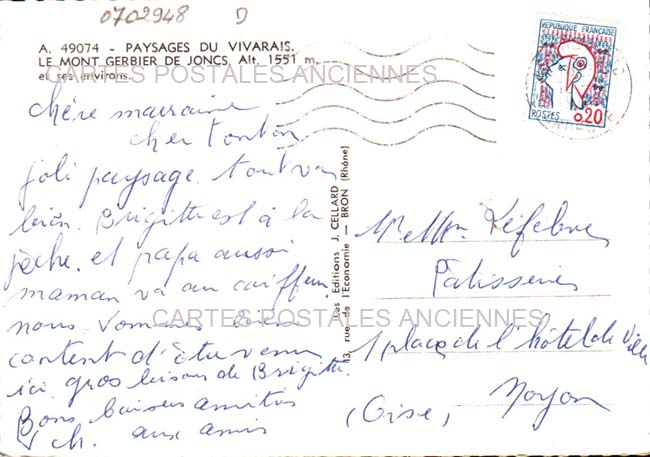 0702948 D
A. 49074 - PAYSAGES DU VIVARAIS.
LE MONT GERBIER DE JONCS, Alt. 1551 m.
et ses environs.
CARTES POSTALES ANCIENNES
REPUBLIQUE FRANÇAISE
POSTES 0,20
chère marraine
cher tonton
joli paysage. tout va
bien. Brigitte est à la
pêche. et papa aussi
maman va au coiffeur
nous sommes bien
content d'être venu
ici. gros baisers de Brigitte.
Bons baisers amitiés
ch. aux amis
13, rue de l'Economie — BRON (Rhône)
Les Editions J. CELLARD
Mr et Mme Lefebvre
Pâtisserie
1 place de l'hôtel de Ville
Noyon
(Oise)
CARTES POSTALES ANCIENNES